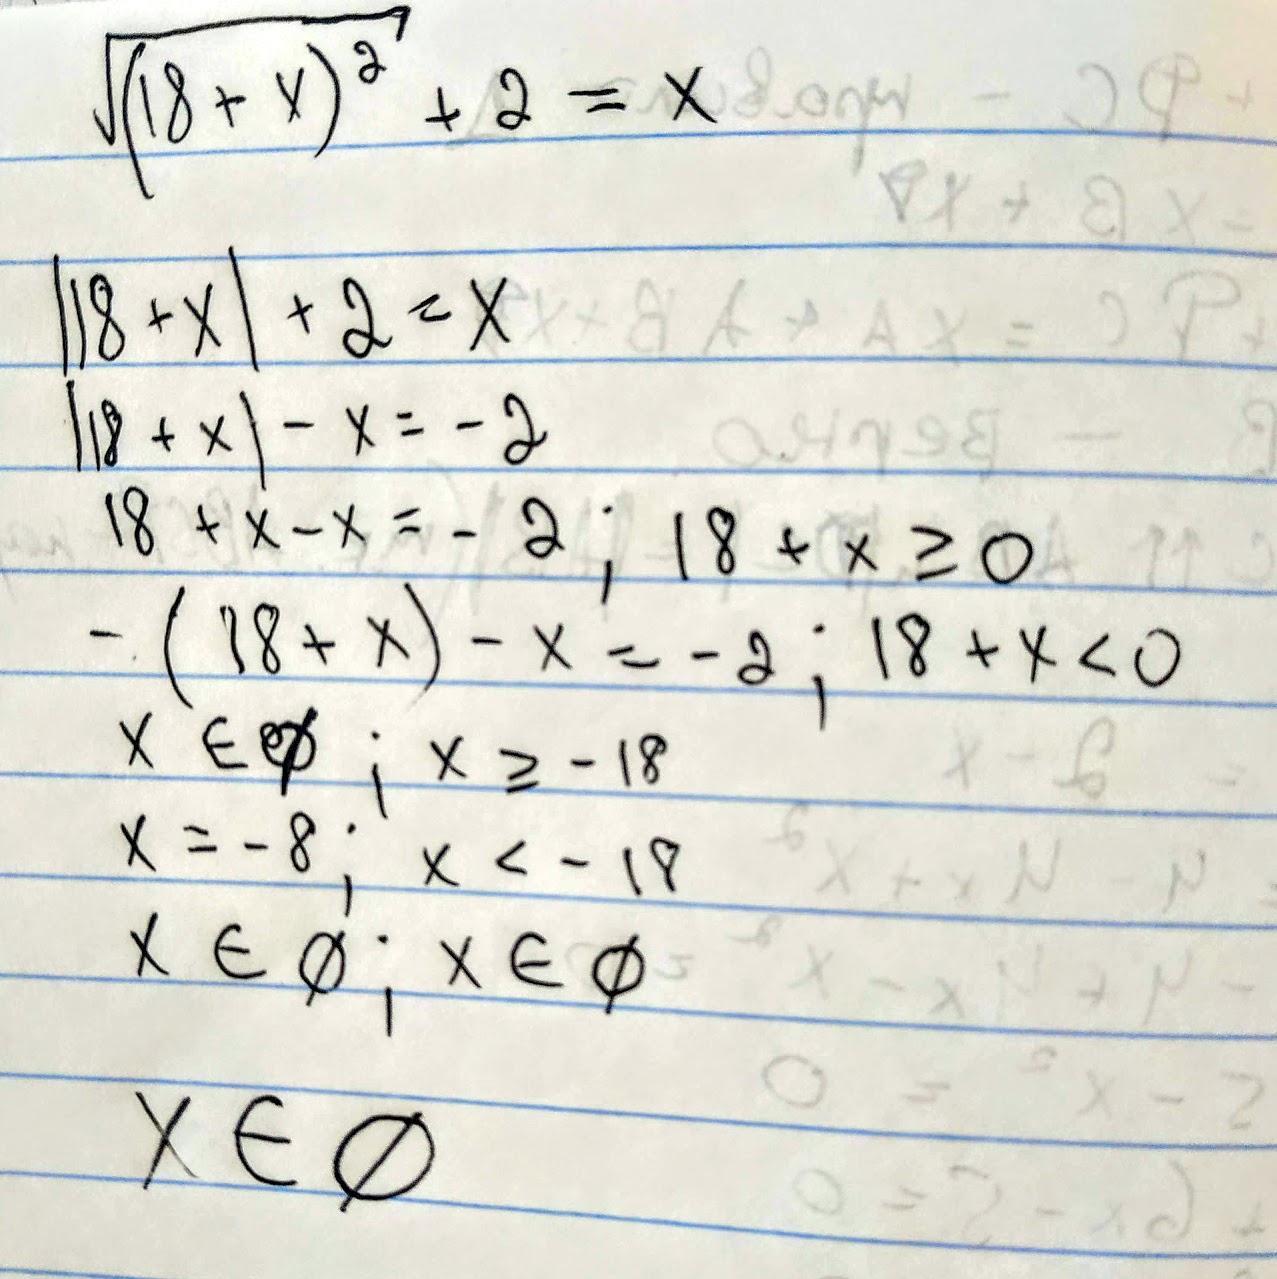 √(18 + x)² + 2 = x
|18 + x| + 2 = x
|18 + x| - x = -2
18 + x - x = -2 ; 18 + x ≥ 0
-(18 + x) - x = -2 ; 18 + x < 0
x ∈ ∅ ; x ≥ -18
x = -8 ; x < -18
x ∈ ∅ ; x ∈ ∅
x ∈ ∅